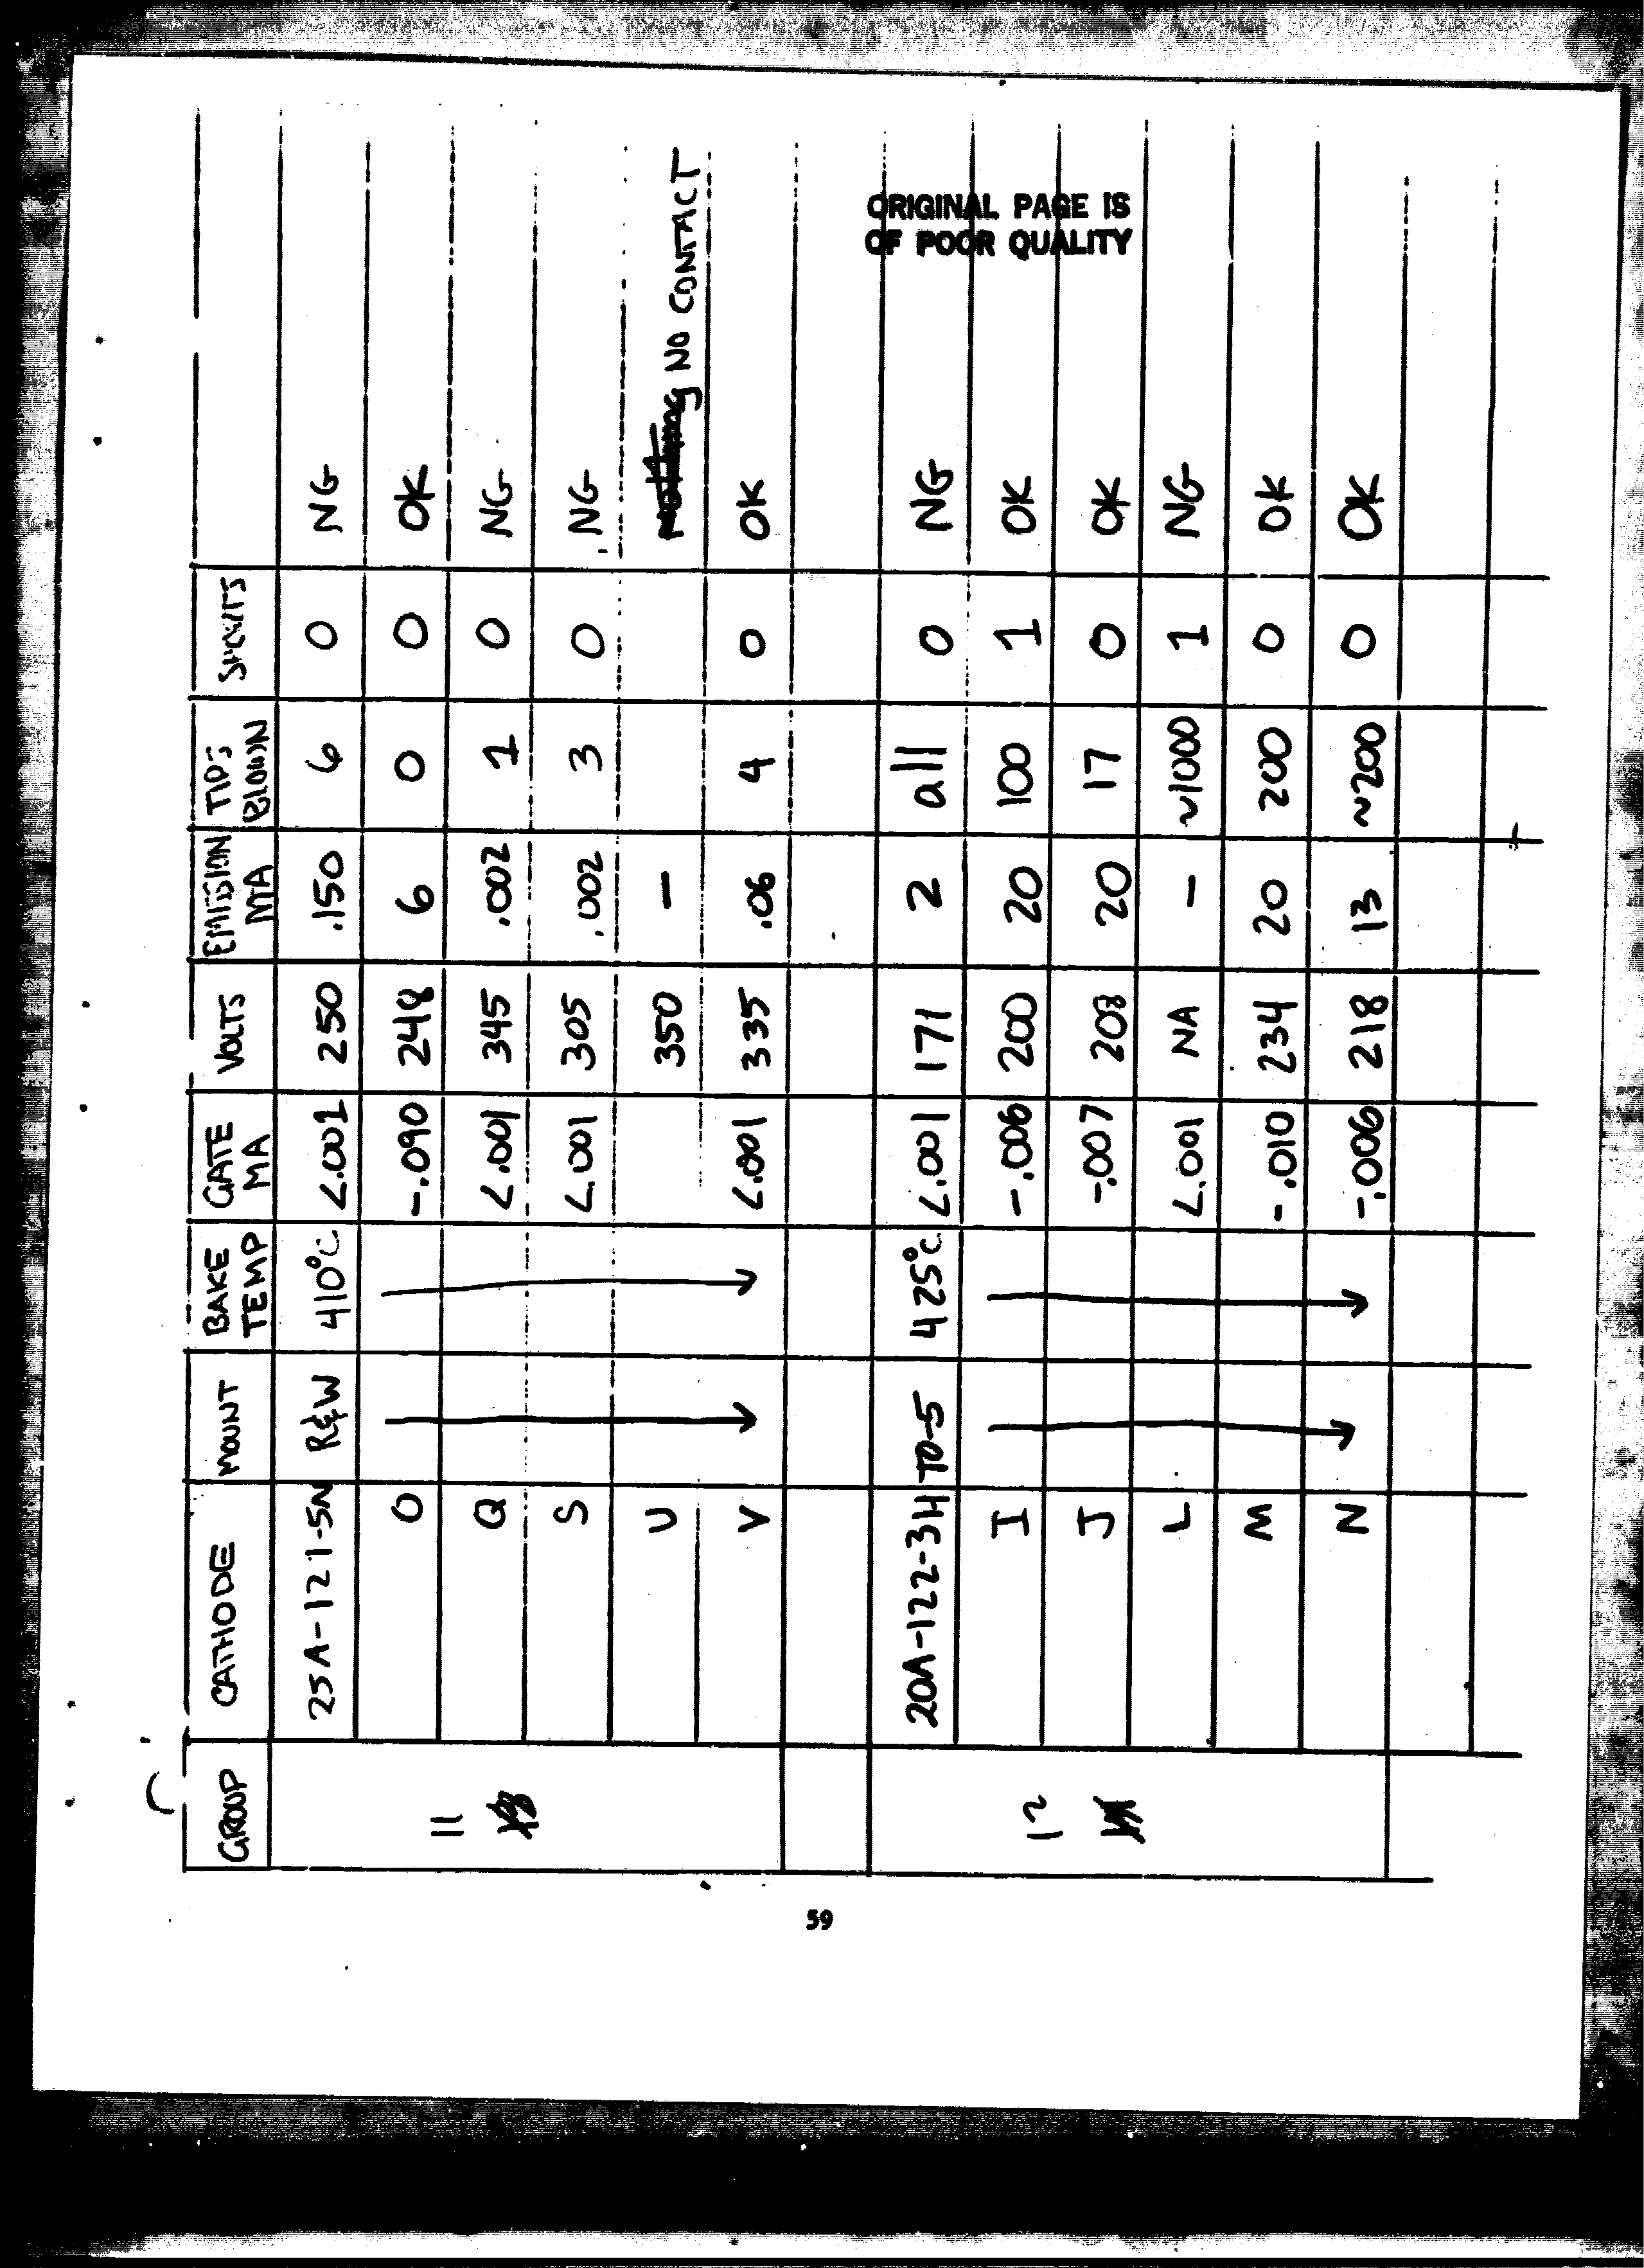 GROUP CATHODE MOUNT BAKE TEMP GATE MA VOLTS EMISSION MA TIPS BLOWN SHORTS
11
25A-121-5N R&W 410°C <.001 250 .150 6 0 NG
O -.090 248 6 0 0 OK
Q <.001 345 .002 1 0 NG
S <.001 305 .002 3 0 NG
U 350 - NO CONTACT
V <.001 335 .06 4 0 OK
12
20A-122-3H TO-5 425°C <.001 171 2 all 0 NG
I -.006 200 20 100 1 OK
J -.007 208 20 17 0 OK
L <.001 NA - ~1000 1 NG
M -.010 234 20 200 0 OK
N -.006 218 13 ~200 0 OK
ORIGINAL PAGE IS
OF POOR QUALITY
59